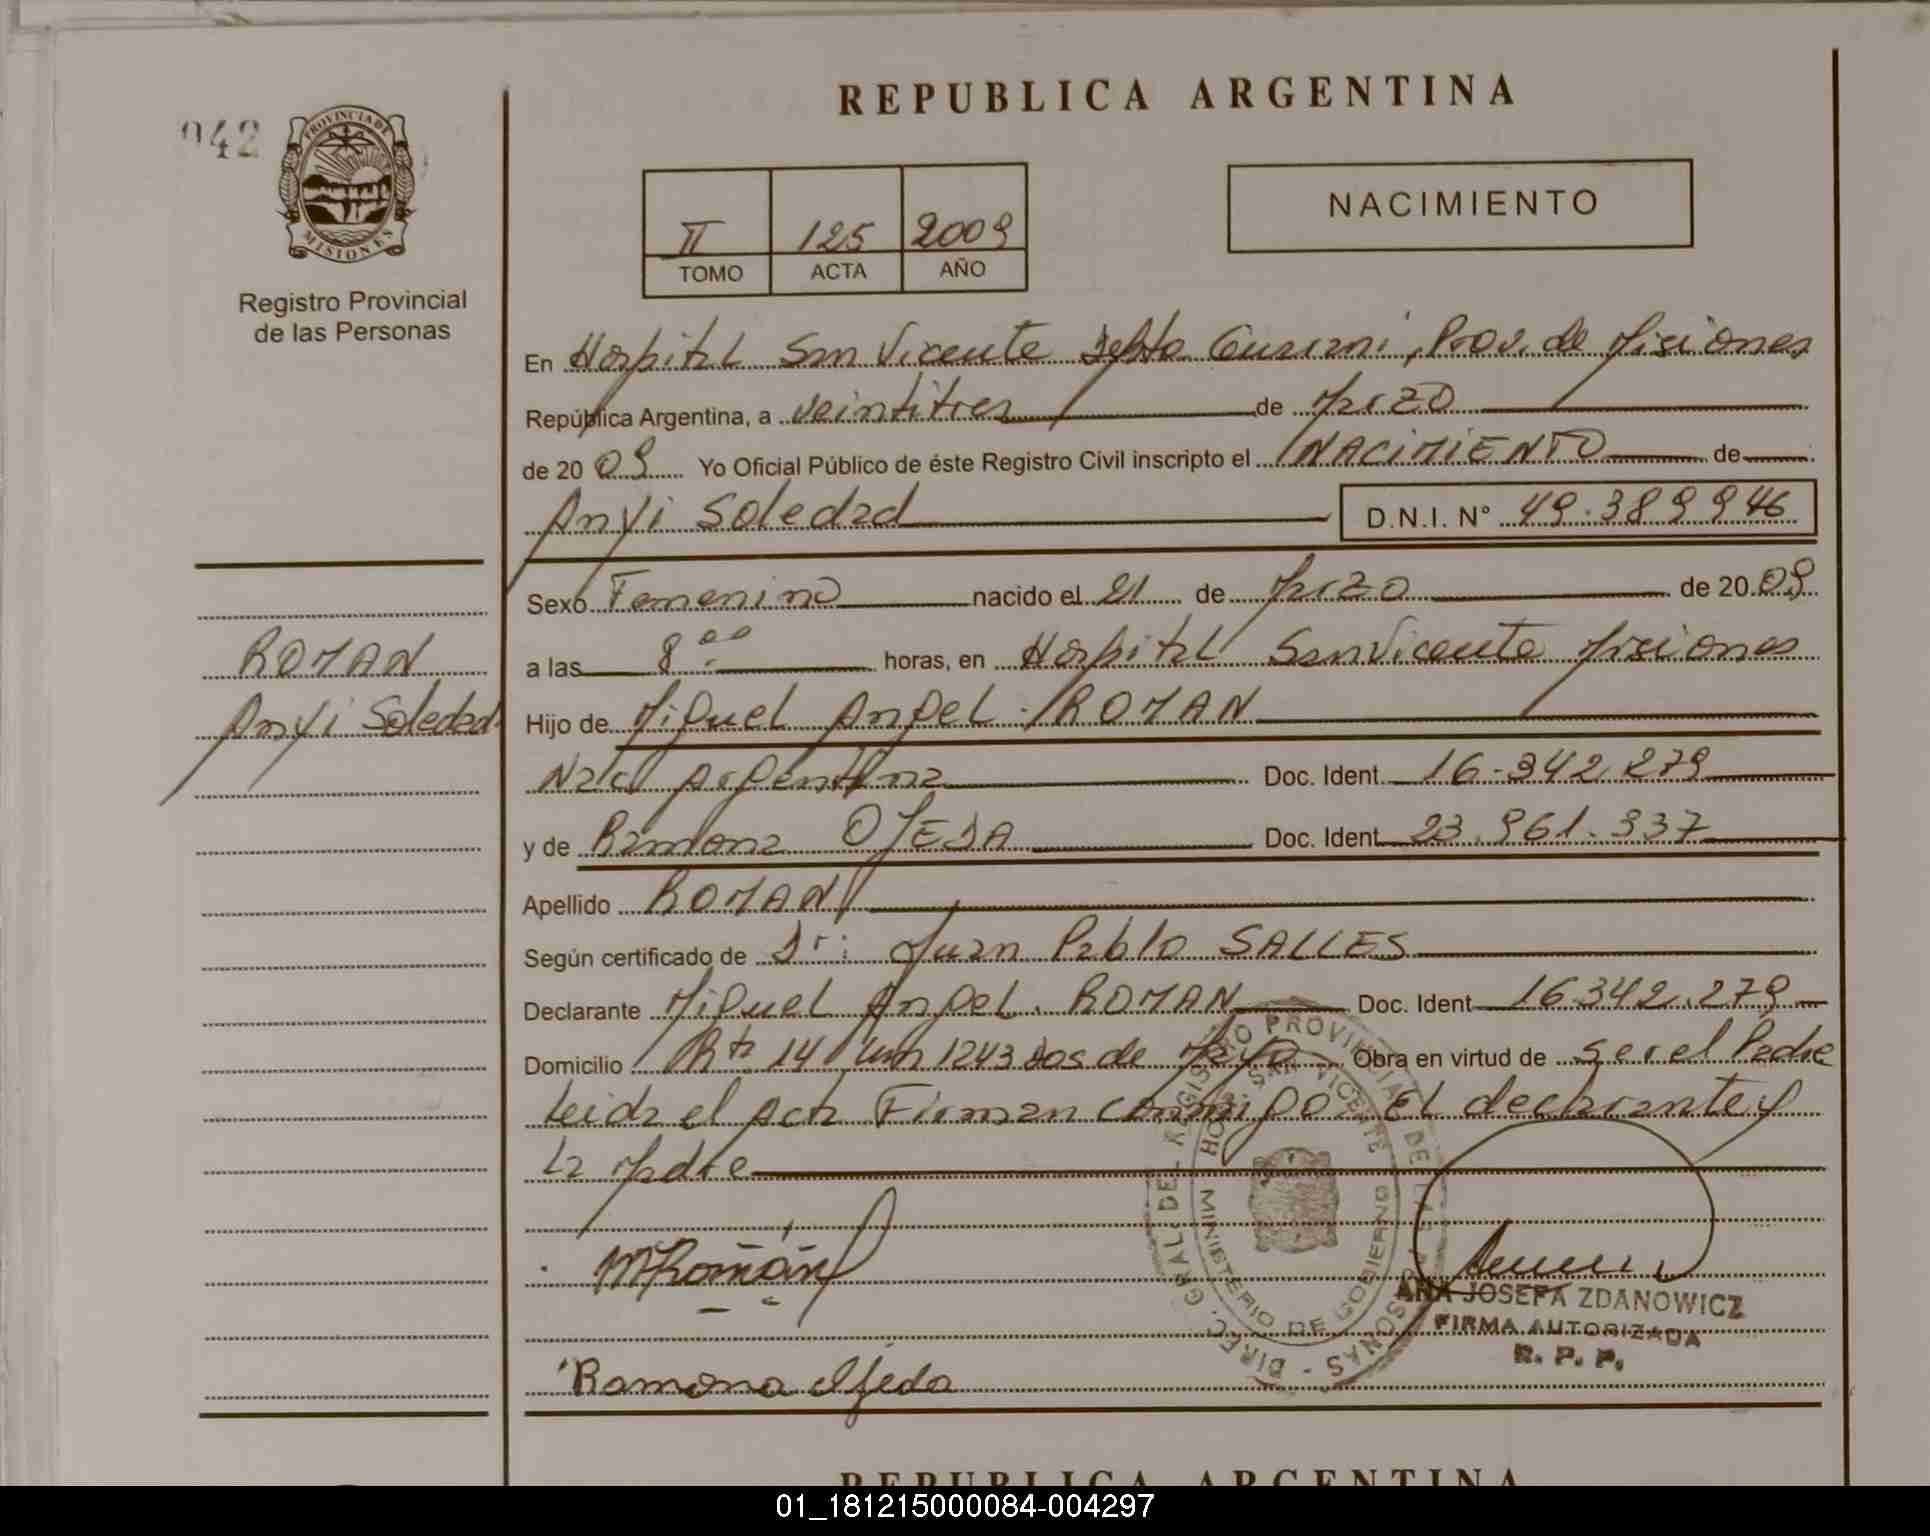 REPUBLICA ARGENTINA
942
PROVINCIA DE
MISIONES
Registro Provincial
de las Personas
II 125 2009
TOMO ACTA AÑO
NACIMIENTO
En Hospital San Vicente Depto Guarani, Prov. de Misiones
República Argentina, a veintitres de Marzo
de 20 09 Yo Oficial Público de éste Registro Civil inscripto el NACIMIENTO de
Anyi Soledad D.N.I. N° 49.389946
Sexo Femenino nacido el 21 de Marzo de 20 09
a las 8 oo horas, en Hospital San Vicente Misiones
ROMAN
Anyi Soledad
Hijo de Miguel Angel ROMAN
Nac Argentina Doc. Ident 16.342.279
y de Ramona OJEDA Doc. Ident 23.961.337
Apellido ROMAN
Según certificado de Dr: Juan Pablo SALLES
Declarante Miguel Angel ROMAN Doc. Ident 16.342.279
Domicilio Rta 14 km 1243 Dos de Mayo Obra en virtud de ser el Padre
Leida el Acta Firman conmigo El declarante y
La Madre
DIREC. GRAL. DE REGISTRO PROVINCIAL DE LAS PERSONAS
HOSPITAL SAN VICENTE
MINISTERIO DE GOBIERNO
MRomán
ANA JOSEFA ZDANOWICZ
FIRMA AUTORIZADA
R. P. P.
Ramona Ojeda
REPUBLICA ARGENTINA
01_181215000084-004297